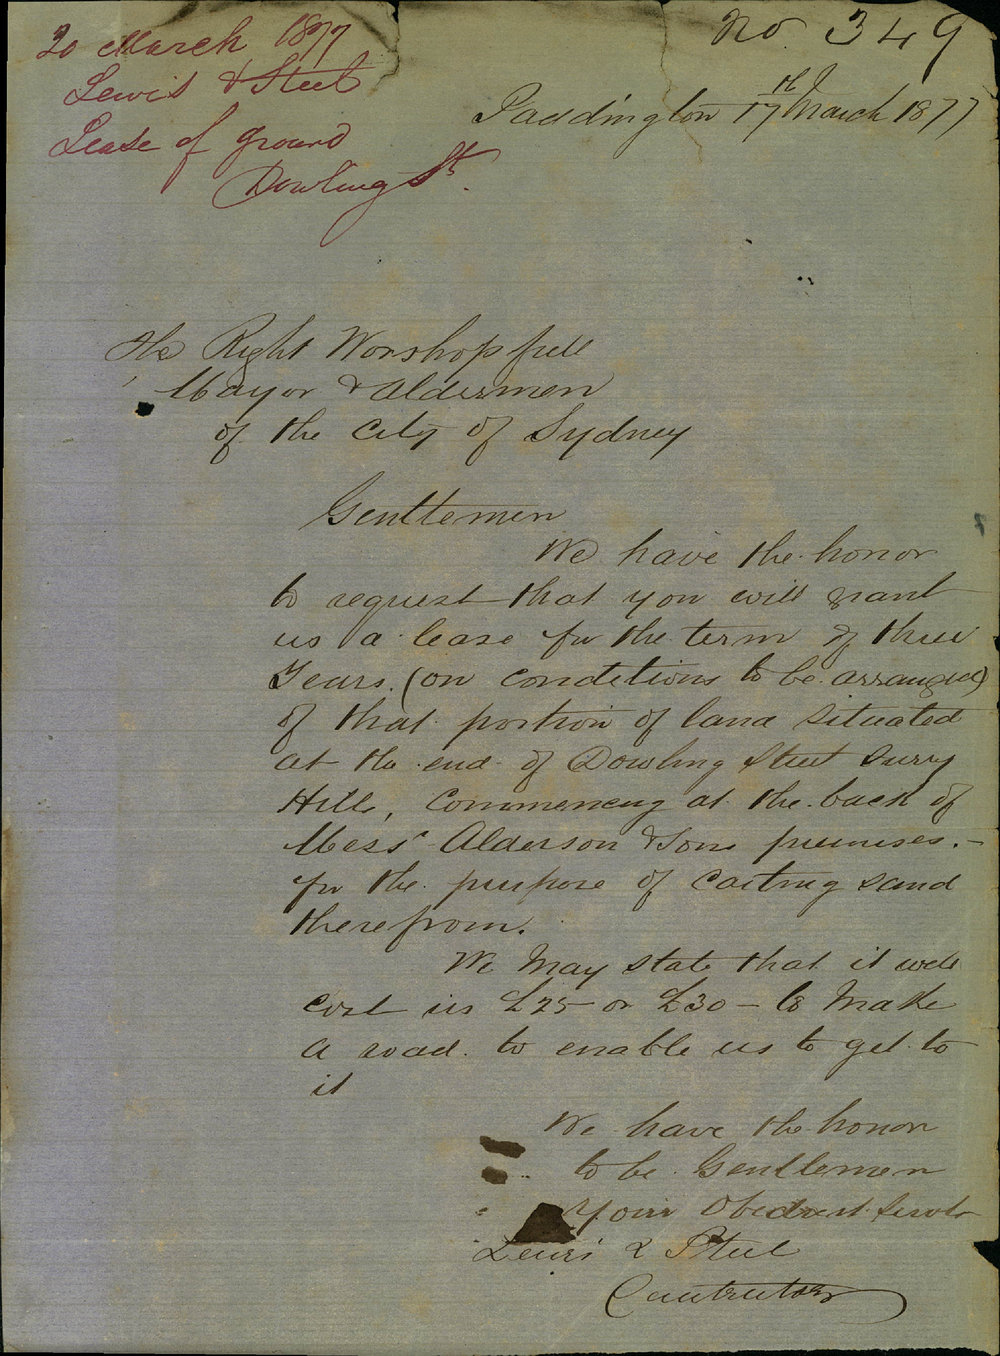 20 March 1877
Lewis & Steel
Lease of ground
Dowling St.
No. 349
Paddington 17th March 1877
The Right Worshopfull
Mayor & Aldermen
of the City of Sydney
Gentlemen
We have the honor
to request that you will grant
us a lease for the term of three
Years. (on conditions to be arranged)
of that portion of land situated
at the end of Dowling Street Surry
Hills, Commencing at the back of
Messrs Alderson & Sons premises. -
for the purpose of carting sand
therefrom.
We May state that it will
cost us £25 or £30 - to Make
a road to enable us to get to
it
We have the honor
to be Gentlemen
Your Obedient Servts
Lewis & Steel
Contractors